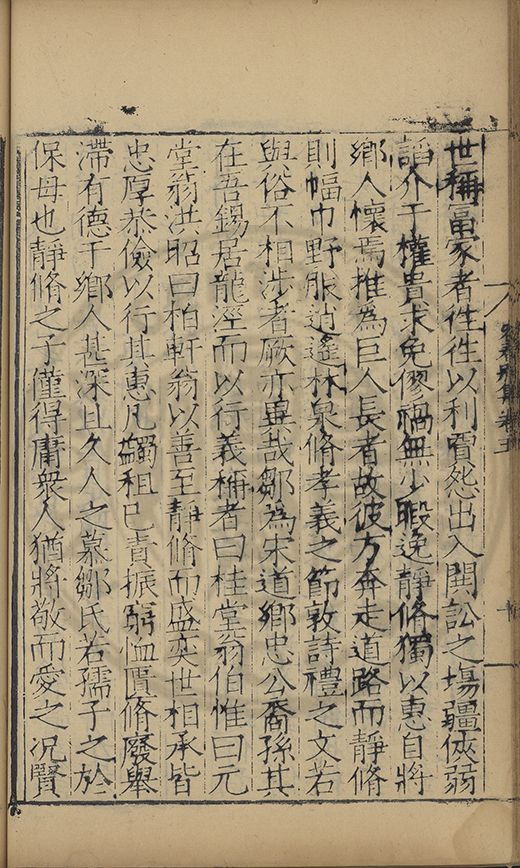 世稱富家者徃徃以利賈怨出入鬩訟之塲彊俠弱
謟介于權貴求免僇禍無少暇逸靜脩獨以惠自將
鄉人懷焉推為巨人長者故彼方奔走道路而靜脩
則幅巾野服逍遙林泉脩孝義之節敦詩禮之文若
與俗不相涉者厥亦異哉鄒為宋道鄉忠公裔孫其
在吾錫居龍涇而以行義稱者曰桂堂翁伯惟曰元
堂翁洪昭曰柏軒翁以善至靜脩而盛奕世相承皆
忠厚恭儉以行其惠凡蠲租已責振窮恤匱脩廢舉
滯有德于鄉人甚深且久人之慕鄒氏若孺子之於
保母也靜脩之子僅得庸衆人猶將敬而愛之况賢